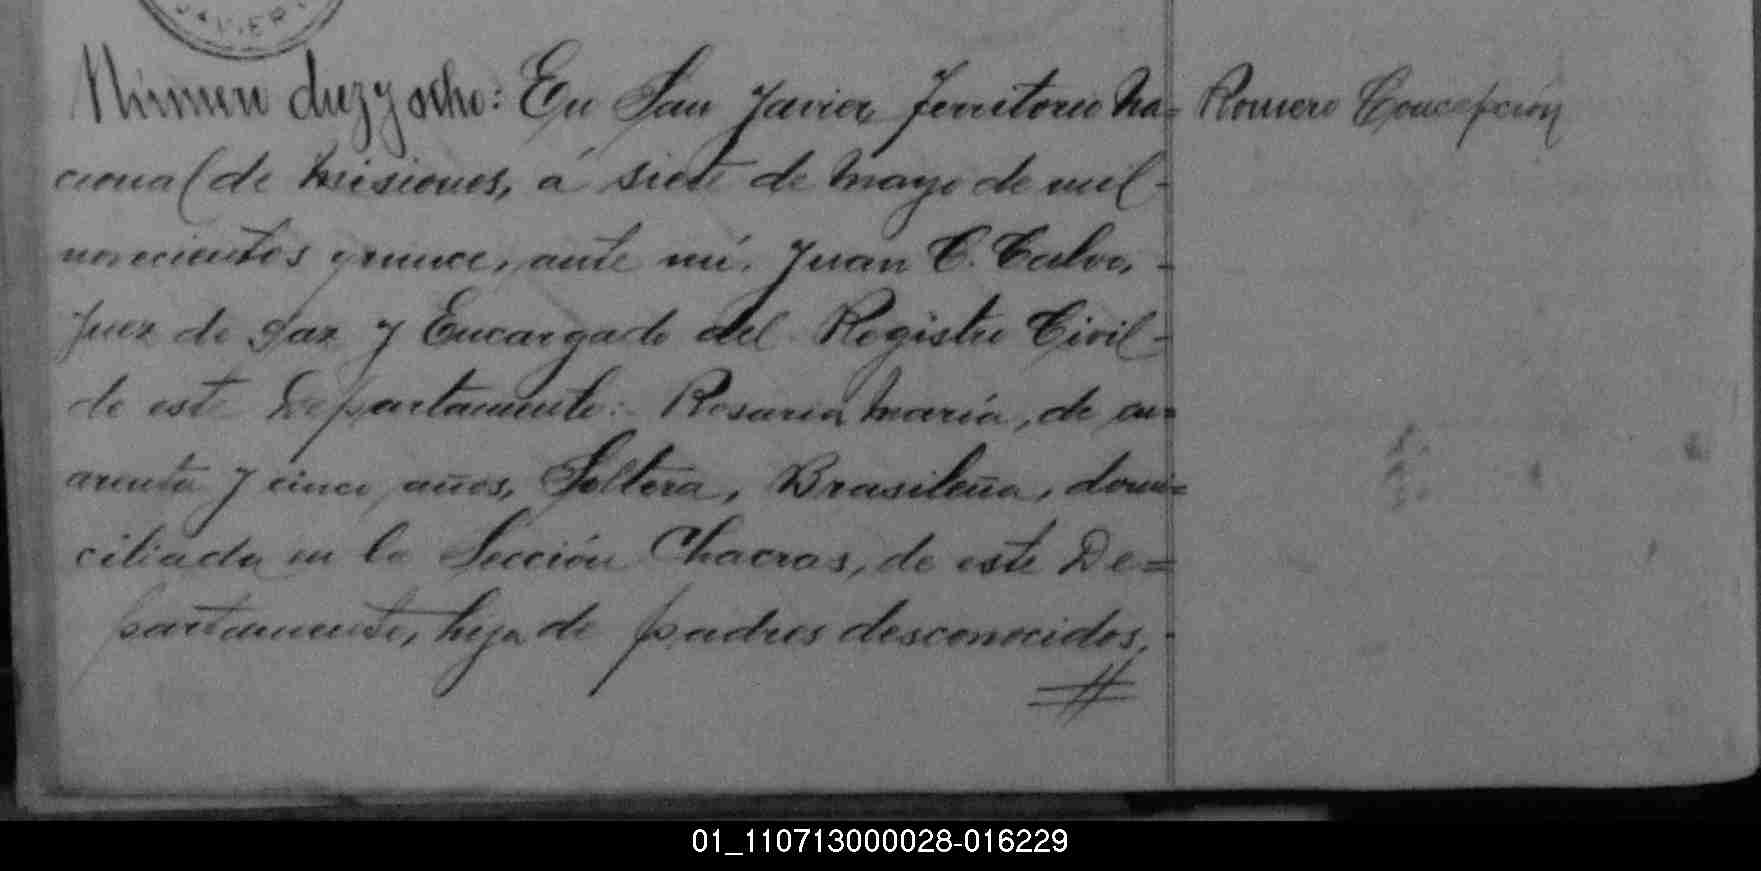 AVIER
Número diez y ocho: En San Javier, Territorio Na=
cional de Misiones, á siete de Mayo de mil-
novecientos quince, ante mí, Juan C. Calvo,-
Juez de Paz y Encargado del Registro Civil-
de este Departamento: Rosaria María, de cu=
arenta y cinco años, Soltera, Brasileña, domi=
ciliada en la Sección Chacras, de este De=
partamento, hija de padres desconocidos,-
Romero Concepción
01_110713000028-016229